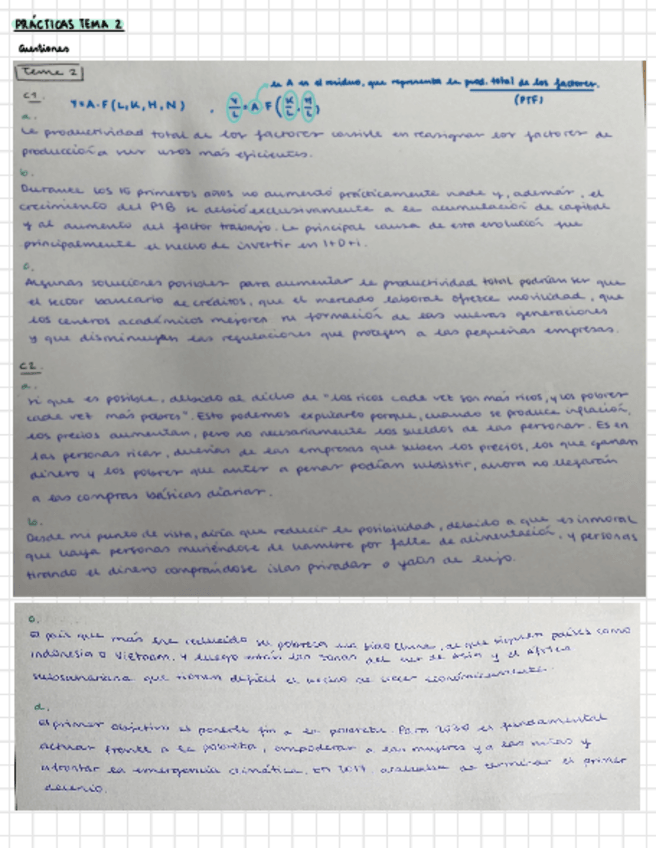 PRÁCTICAS TEMA 2
Cuestiones
Tema 2
la A es el residuo, que representa la prod. total de los factores.
(PTF)
C1.
Y=A·F(L,K,H,N) , Y/L = A F(K/L, H/L)
a.
La productividad total de los factores consiste en reasignar los factores de
producción a sus usos más eficientes.
b.
Durante los 16 primeros años no aumentó prácticamente nada y, además, el
crecimiento del PIB se debió exclusivamente a la acumulación de capital
y al aumento del factor trabajo. La principal causa de esta evolución fue
principalmente el hecho de invertir en I+D+i.
c.
Algunas soluciones posibles para aumentar la productividad total podrían ser que
el sector bancario de créditos, que el mercado laboral ofrezca movilidad, que
los centros académicos mejoren la formación de las nuevas generaciones
y que disminuyan las regulaciones que protegen a las pequeñas empresas.
C2.
a.
Sí que es posible, debido al dicho de "los ricos cada vez son más ricos, y los pobres
cada vez más pobres". Esto podemos explicarlo porque, cuando se produce inflación,
los precios aumentan, pero no necesariamente los sueldos de las personas. Es en
las personas ricas, dueñas de las empresas que suben los precios, los que ganan
dinero y los pobres que antes a penas podían subsistir, ahora no llegarán
a las compras básicas diarias.
b.
Desde mi punto de vista, diría que reducir la posibilidad, debido a que es inmoral
que haya personas muriéndose de hambre por falta de alimentación, y personas
tirando el dinero comprándose islas privadas o yates de lujo.
c.
El país que más ha reducido su pobreza ha sido China, al que siguen países como
Indonesia o Vietnam. Y luego están las zonas del sur de Asia y el África
subsahariana que tienen difícil el hecho de crecer económicamente.
d.
El primer objetivo es ponerle fin a la pobreza. Para 2030 es fundamental
actuar frente a la pobreza, empoderar a las mujeres y a las niñas y
afrontar la emergencia climática. En 2017 acababa de terminar el primer
decenio.